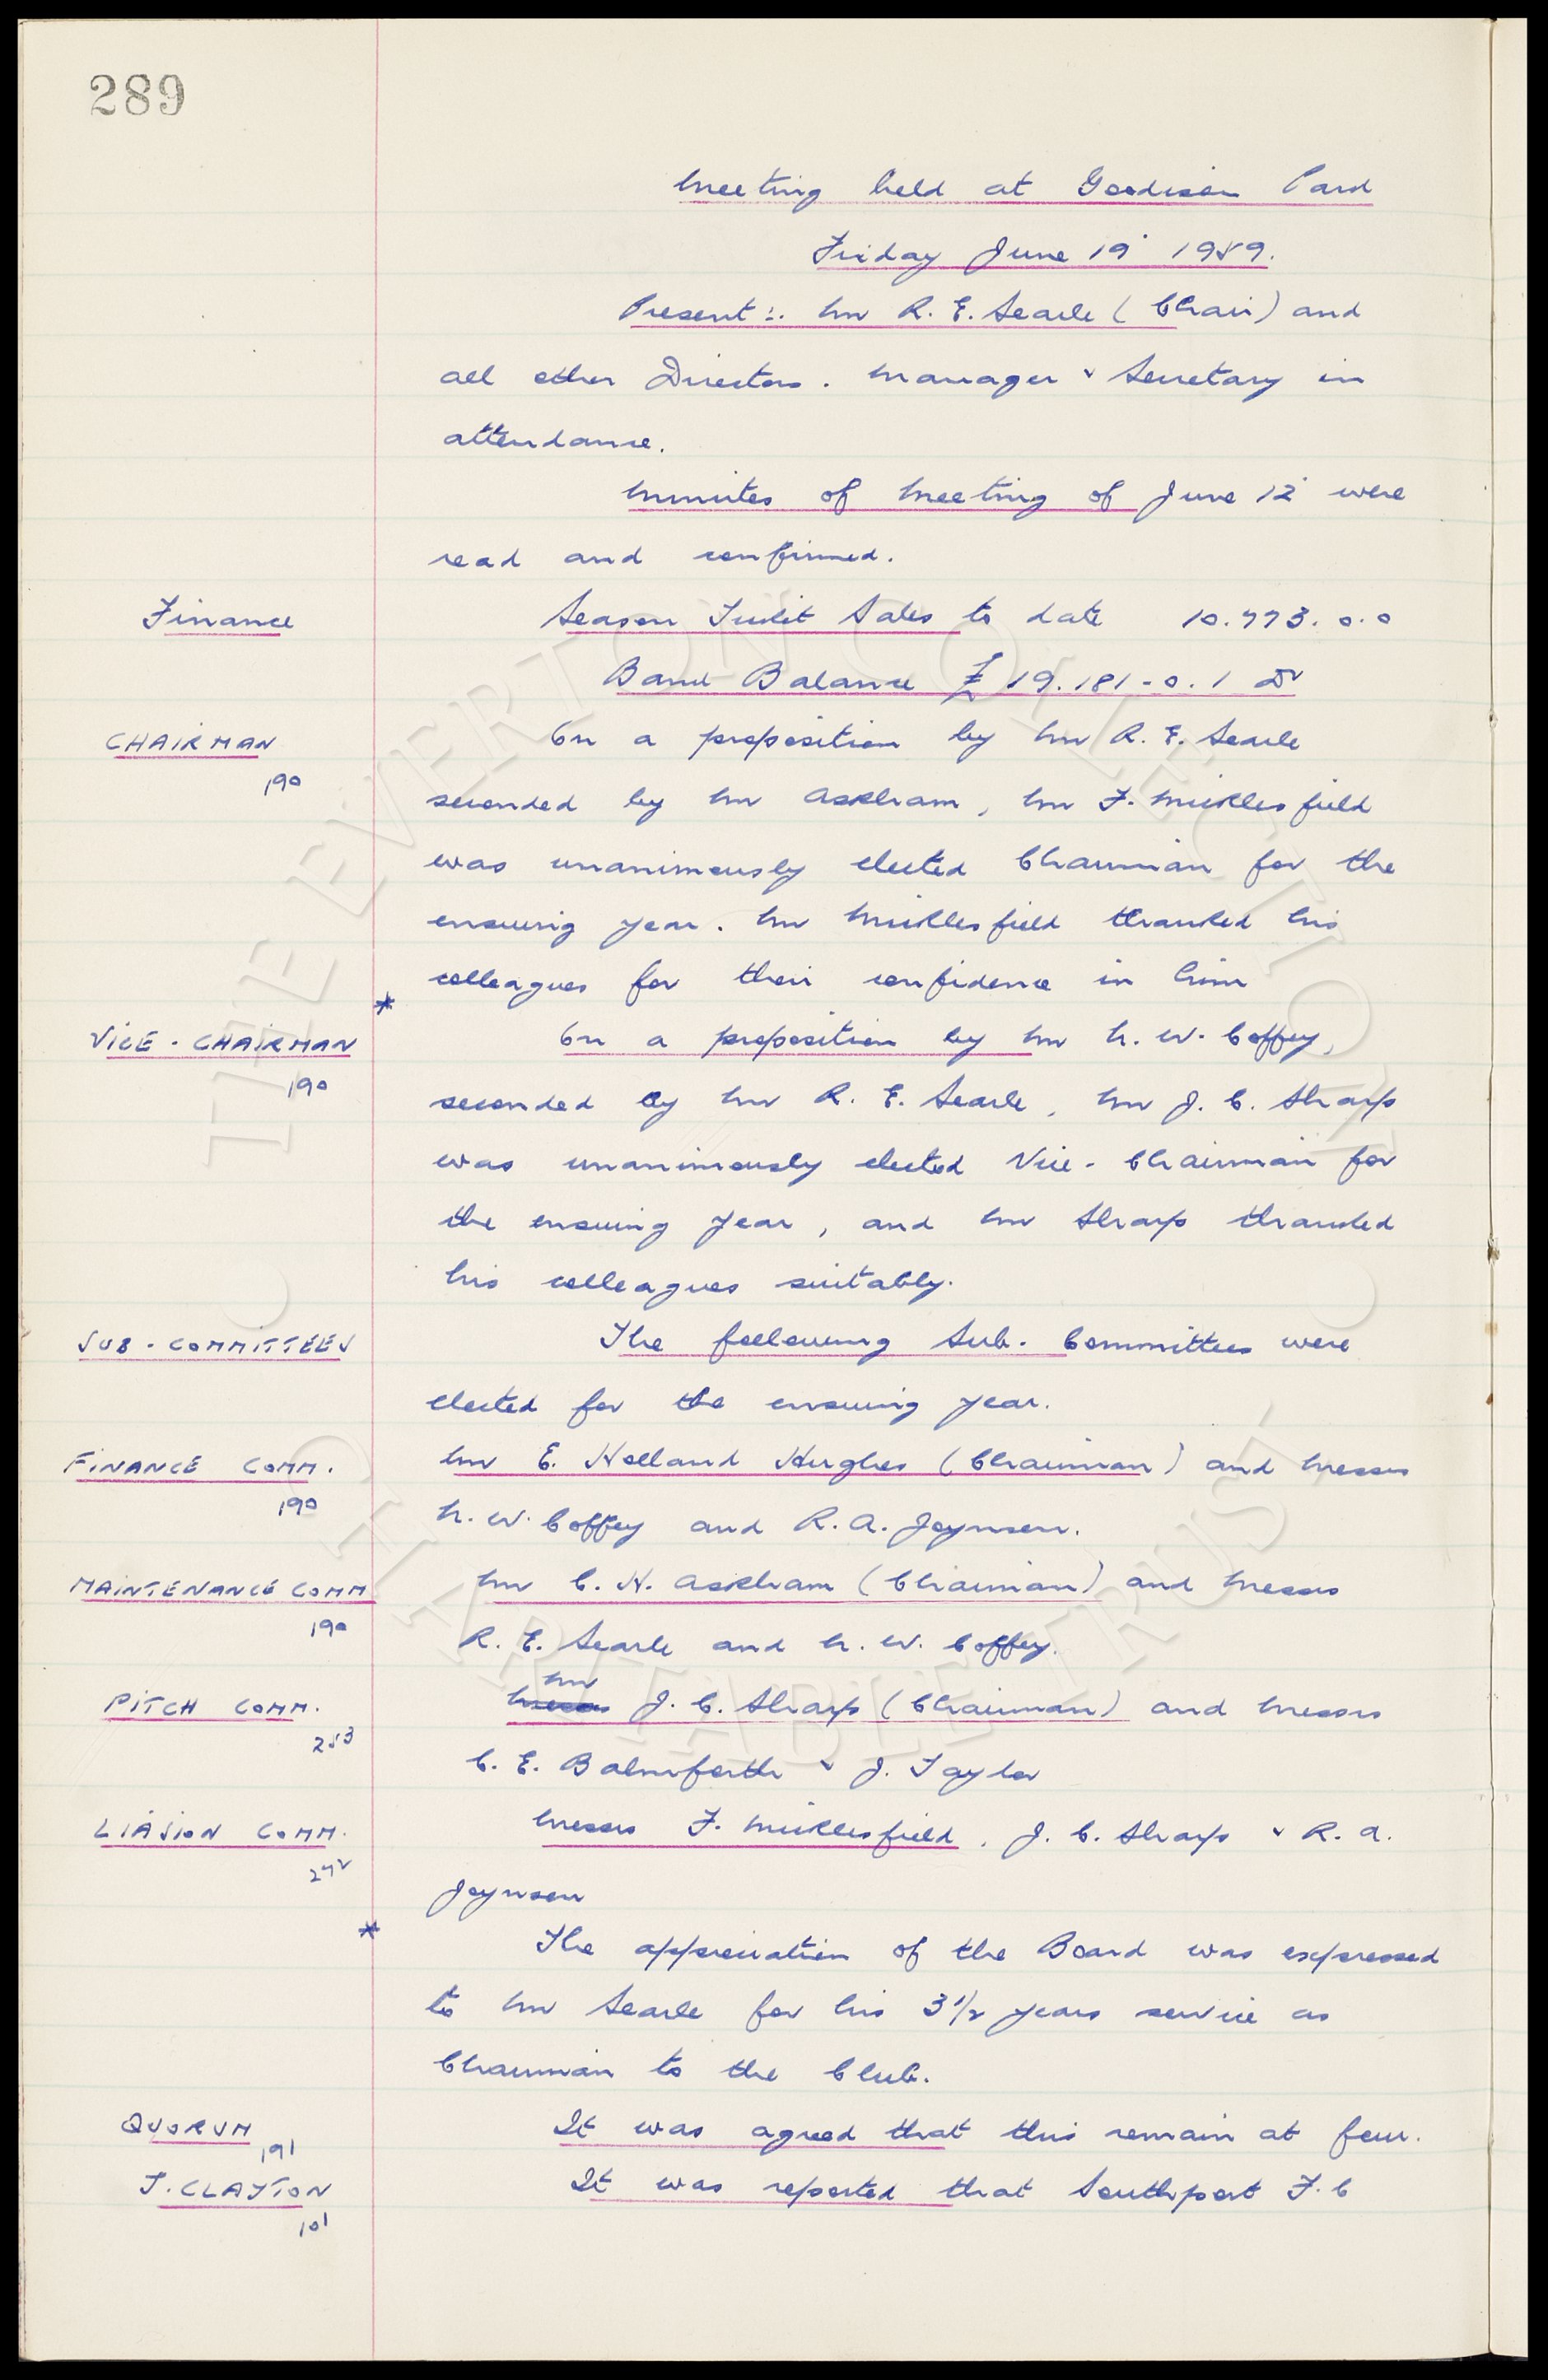 289
Meeting held at Goodison Park
Friday June 19' 1959.
Present :. Mr R. E. Searle ( Chair) and
all other Directors . Manager & Secretary in
attendance.
Minutes of Meeting of June 12' were
read and confirmed.
Finance Season Ticket Sales to date 10.773. 0. 0
Bank Balance £ 19.181 - 0. 1 Dr
CHAIRMAN On a proposition by Mr R. E. Searle
190
seconded by Mr Askham , Mr F. Micklesfield
was unanimously elected Chairman for the
ensuing year . Mr Micklesfield thanked his
colleagues for their confidence in him
*
VICE - CHAIRMAN On a proposition by Mr N. W. Coffey,
190
seconded by Mr R. E. Searle , Mr J. C. Sharp
was unanimously elected Vice - Chairman for
the ensuing year , and Mr Sharp thanked
his colleagues suitably.
SUB - COMMITTEES The following Sub - Committees were
elected for the ensuing year.
FINANCE COMM. Mr E. Holland Hughes ( Chairman ) and Messrs
190
N. W. Coffey and R. A. Joynson.
MAINTENANCE COMM Mr C. H. Askham ( Chairman ) and Messrs
190
R. E. Searle and N. W. Coffey.
Mr
PITCH COMM. Messrs J. C. Sharp ( Chairman ) and Messrs
253
C. E. Balmforth & J. Taylor
LIASION COMM. Messrs F. Micklesfield , J. C. Sharp & R. A.
272
Joynson
*
The appreciation of the Board was expressed
to Mr Searle for his 3 1/2 years service as
Chairman to the Club.
QUORUM It was agreed that this remain at four.
191
J. CLAYTON It was reported that Southport F. C
101
THE EVERTON COLLECTION
CHARITABLE TRUST